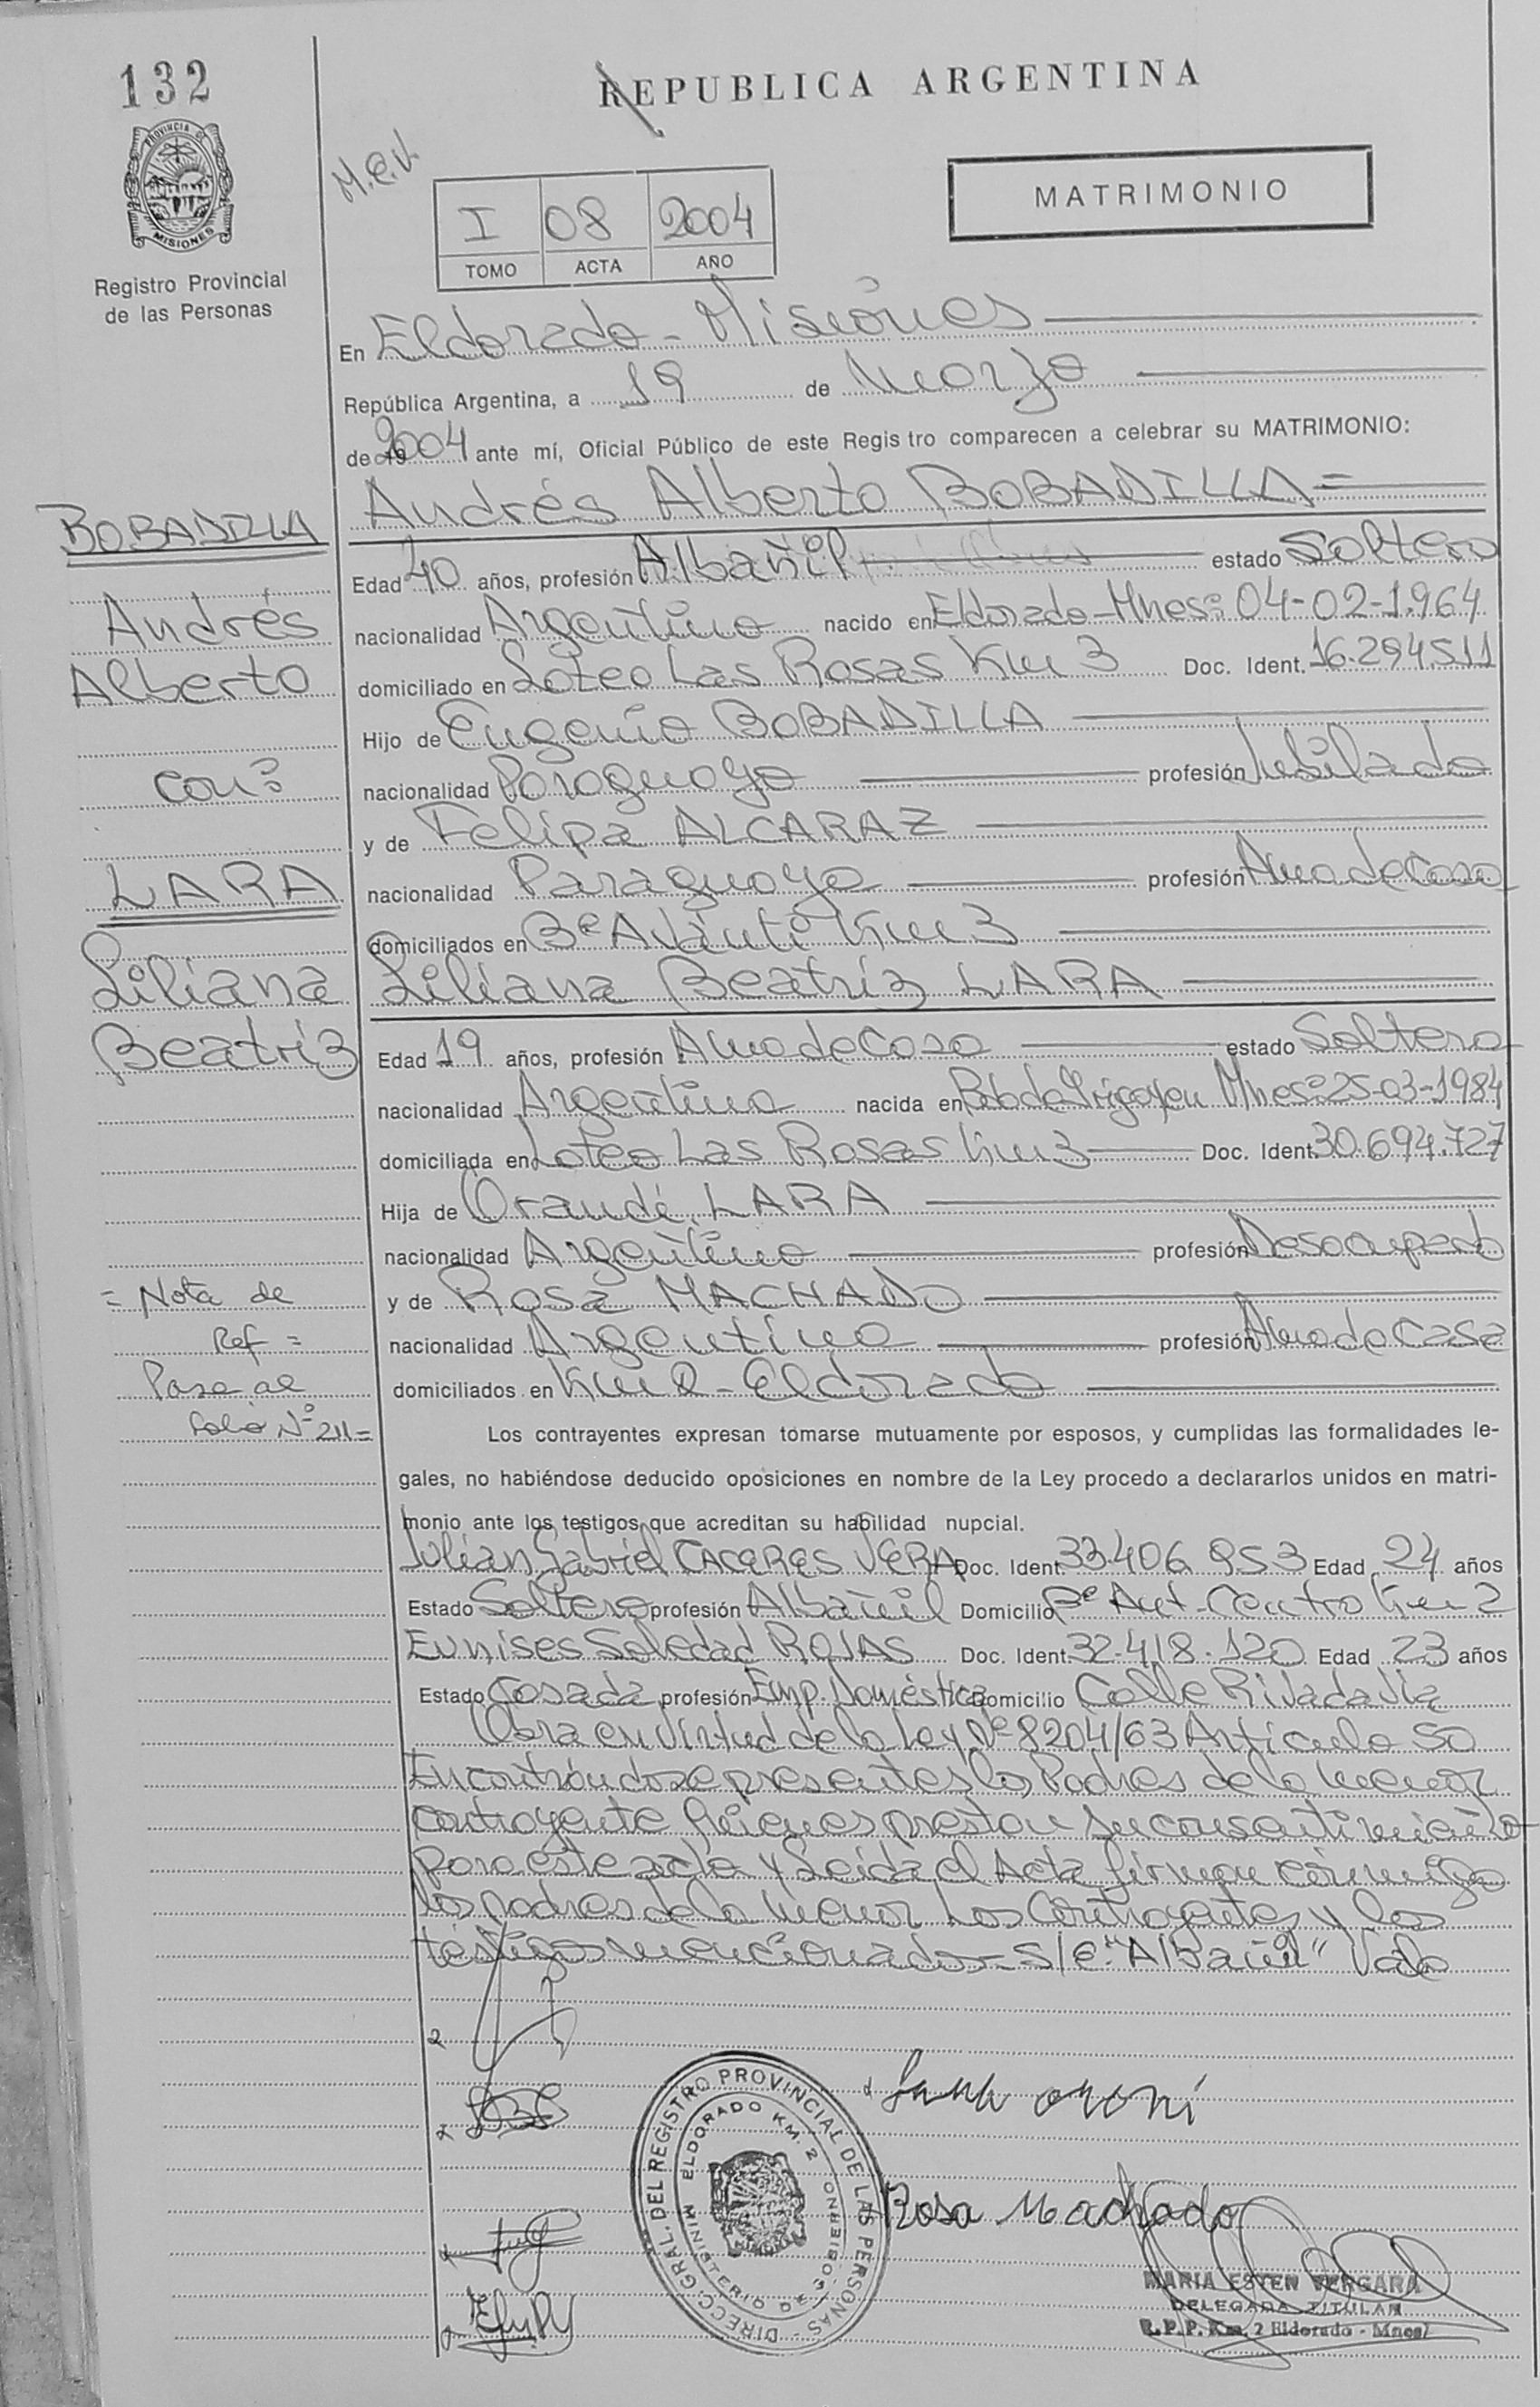 132
REPUBLICA ARGENTINA
PROVINCIA D
MISIONES
Registro Provincial
de las Personas
M.E.V.
MATRIMONIO
I 08 2004
TOMO ACTA AÑO
En Eldorado - Misiones
República Argentina, a 19 de Marzo
de 2004 ante mí, Oficial Público de este Registro comparecen a celebrar su MATRIMONIO:
Andrés Alberto BOBADILLA =
Edad 40 años, profesión Albañil estado Soltero
nacionalidad Argentino nacido en Eldorado - Mnes: 04-02-1.964
domiciliado en Loteo Las Rosas Km 3 Doc. Ident. 16.294.511
Hijo de Eugenio BOBADILLA
nacionalidad Paraguayo profesión Jubilado
y de Felipa ALCARAZ
nacionalidad Paraguaya profesión Ama de Casa
domiciliados en Km 3
Liliana Beatriz LARA
Edad 19 años, profesión Ama de Casa estado Soltera
nacionalidad Argentina nacida en Bdo de Irigoyen Mnes: 25-03-1984
domiciliada en Loteo Las Rosas Km 3 Doc. Ident. 30.694.727
Hija de LARA
nacionalidad Argentino profesión Desocupado
y de Rosa MACHADO
nacionalidad Argentina profesión Ama de Casa
domiciliados en Km 2 - Eldorado
BOBADILLA
Andrés
Alberto
con:
LARA
Liliana
Beatriz
= Nota de
Ref =
Pase al
Folio Nº 211 =
Los contrayentes expresan tomarse mutuamente por esposos, y cumplidas las formalidades le-
gales, no habiéndose deducido oposiciones en nombre de la Ley procedo a declararlos unidos en matri-
monio ante los testigos que acreditan su habilidad nupcial.
Julián Gabriel CACERES VERA Doc. Ident. 33.406.953 Edad 24 años
Estado Soltero profesión Albañil Domicilio Centro Km 2
Eunises Soledad ROJAS Doc. Ident. 32.418.120 Edad 23 años
Estado Casada profesión Emp. Doméstica Domicilio Calle Rivadavia
Obra en virtud de la Ley Nº 8204/63 Artículo 50
Encontrándose presentes los Padres de la menor
contrayente quienes prestan su consentimiento
para este acto y Leida el Acta firman conmigo
los padres de la menor Los Contrayentes y los
testigos mencionados = S/E: "Albañil" Vale
DIRECC. GRAL. DEL REGISTRO PROVINCIAL DE LAS PERSONAS -
MINISTERIO DE GOBIERNO
ELDORADO KM. 2
Rosa Machado
MARIA ESTER VERGARA
DELEGADA TITULAR
R.P.P. Km. 2 Eldorado - Mnes/